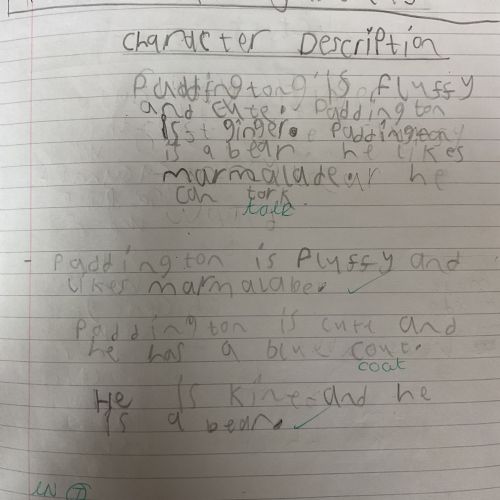 Character Description
Paddington is fluffy
and cute. Paddington
is ginger. Paddington
is a bear he likes
marmalade he
can tork
talk
- Paddington is fluffy and
likes marmalabe.
Paddington is cute and
he has a blue cout.
coat
He is kine and he
is a bear.